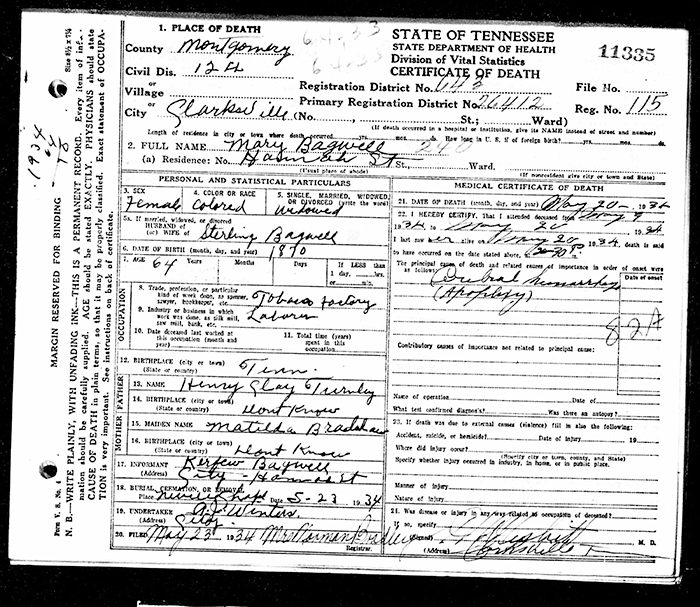 STATE OF TENNESSEE
STATE DEPARTMENT OF HEALTH
Division of Vital Statistics
CERTIFICATE OF DEATH
11335
1. PLACE OF DEATH
County Montgomery
Civil Dis. 12th
or
Village
or
City Clarksville (No. , St.; Ward)
Registration District No. 643 File No.
Primary Registration District No. 26412 Reg. No. 115
(If death occurred in a hospital or institution, give its NAME instead of street and number)
Length of residence in city or town where death occurred yrs. mos. ds. How long in U. S. if of foreign birth? yrs. mos. ds.
2. FULL NAME Mary Bagwell 240
(a) Residence: No. Hannah St. Ward.
(Usual place of abode) (If nonresident give city or town and State)
PERSONAL AND STATISTICAL PARTICULARS
3. SEX Female
4. COLOR OR RACE Colored
5. SINGLE, MARRIED, WIDOWED, OR DIVORCED (write the word) Widowed
5a. If married, widowed, or divorced
HUSBAND of
(or) WIFE of Sterling Bagwell
6. DATE OF BIRTH (month, day, and year) 1870
7. AGE 64 Years Months Days If LESS than 1 day, hrs. or min.
OCCUPATION
8. Trade, profession, or particular kind of work done, as spinner, sawyer, bookkeeper, etc. Tobacco Factory
9. Industry or business in which work was done, as silk mill, saw mill, bank, etc. Laborer
10. Date deceased last worked at this occupation (month and year)
11. Total time (years) spent in this occupation
12. BIRTHPLACE (city or town) Tenn.
(State or country)
FATHER
13. NAME Henry Clay Turnley
14. BIRTHPLACE (city or town) Dont Know
(State or country)
MOTHER
15. MAIDEN NAME Matilda Bradshaw
16. BIRTHPLACE (city or town) Dont Know
(State or country)
17. INFORMANT Bagwell
(Address) City Hannah St
18. BURIAL, CREMATION, OR REMOVAL
Place Date 5-23 1934
19. UNDERTAKER Winters
(Address) City
20. FILED May 23 1934 Mrs Norman
Registrar.
MEDICAL CERTIFICATE OF DEATH
21. DATE OF DEATH (month, day, and year) May 20 - 1934
22. I HEREBY CERTIFY, That I attended deceased from May 9
1934, to May 20 1934
I last saw her alive on May 20 1934, death is said
to have occurred on the date stated above,
The principal cause of death and related causes of importance in order of onset were as follows: Date of onset
Cerebral Hemorrhage
(Apoplexy)
82A
Contributory causes of importance not related to principal cause:
Name of operation Date of
What test confirmed diagnosis? Was there an autopsy?
23. If death was due to external causes (violence) fill in also the following:
Accident, suicide, or homicide? Date of injury 19
Where did injury occur?
(Specify city or town, county, and State)
Specify whether injury occurred in industry, in home, or in public place.
Manner of injury
Nature of injury
24. Was disease or injury in any way related to occupation of deceased?
If so, specify
(Signed) M. D.
(Address) Clarksville
MARGIN RESERVED FOR BINDING
N. B.—WRITE PLAINLY, WITH UNFADING INK—THIS IS A PERMANENT RECORD. Every item of information should be carefully supplied. AGE should be stated EXACTLY. PHYSICIANS should state CAUSE OF DEATH in plain terms, so that it may be properly classified. Exact statement of OCCUPATION is very important. See instructions on back of certificate.
Form V. S. No. 4
1934
64